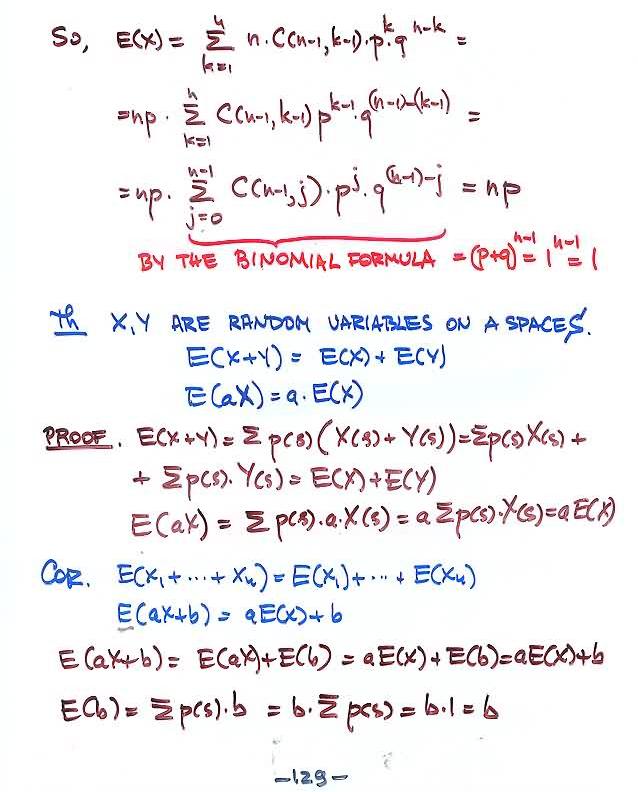 So, E(X) = Σ_{k=1}^{n} n·C(n-1, k-1)·p^k·q^{n-k} =
= np · Σ_{k=1}^{n} C(n-1, k-1) p^{k-1}·q^{(n-1)-(k-1)} =
= np · Σ_{j=0}^{n-1} C(n-1, j)·p^j·q^{(n-1)-j} = np
BY THE BINOMIAL FORMULA = (p+q)^{n-1} = 1^{n-1} = 1
Th X, Y ARE RANDOM VARIABLES ON A SPACE S.
E(X+Y) = E(X) + E(Y)
E(aX) = a·E(X)
PROOF. E(X+Y) = Σ p(s)(X(s) + Y(s)) = Σp(s)X(s) +
+ Σp(s)·Y(s) = E(X)+E(Y)
E(aX) = Σ p(s)·a·X(s) = a Σp(s)·X(s) = aE(X)
COR. E(X₁ + ··· + Xₙ) = E(X₁) + ··· + E(Xₙ)
E(aX+b) = aE(X)+b
E(aX+b) = E(aX)+E(b) = aE(X)+E(b) = aE(X)+b
E(b) = Σp(s)·b = b·Σ p(s) = b·1 = b
-129-